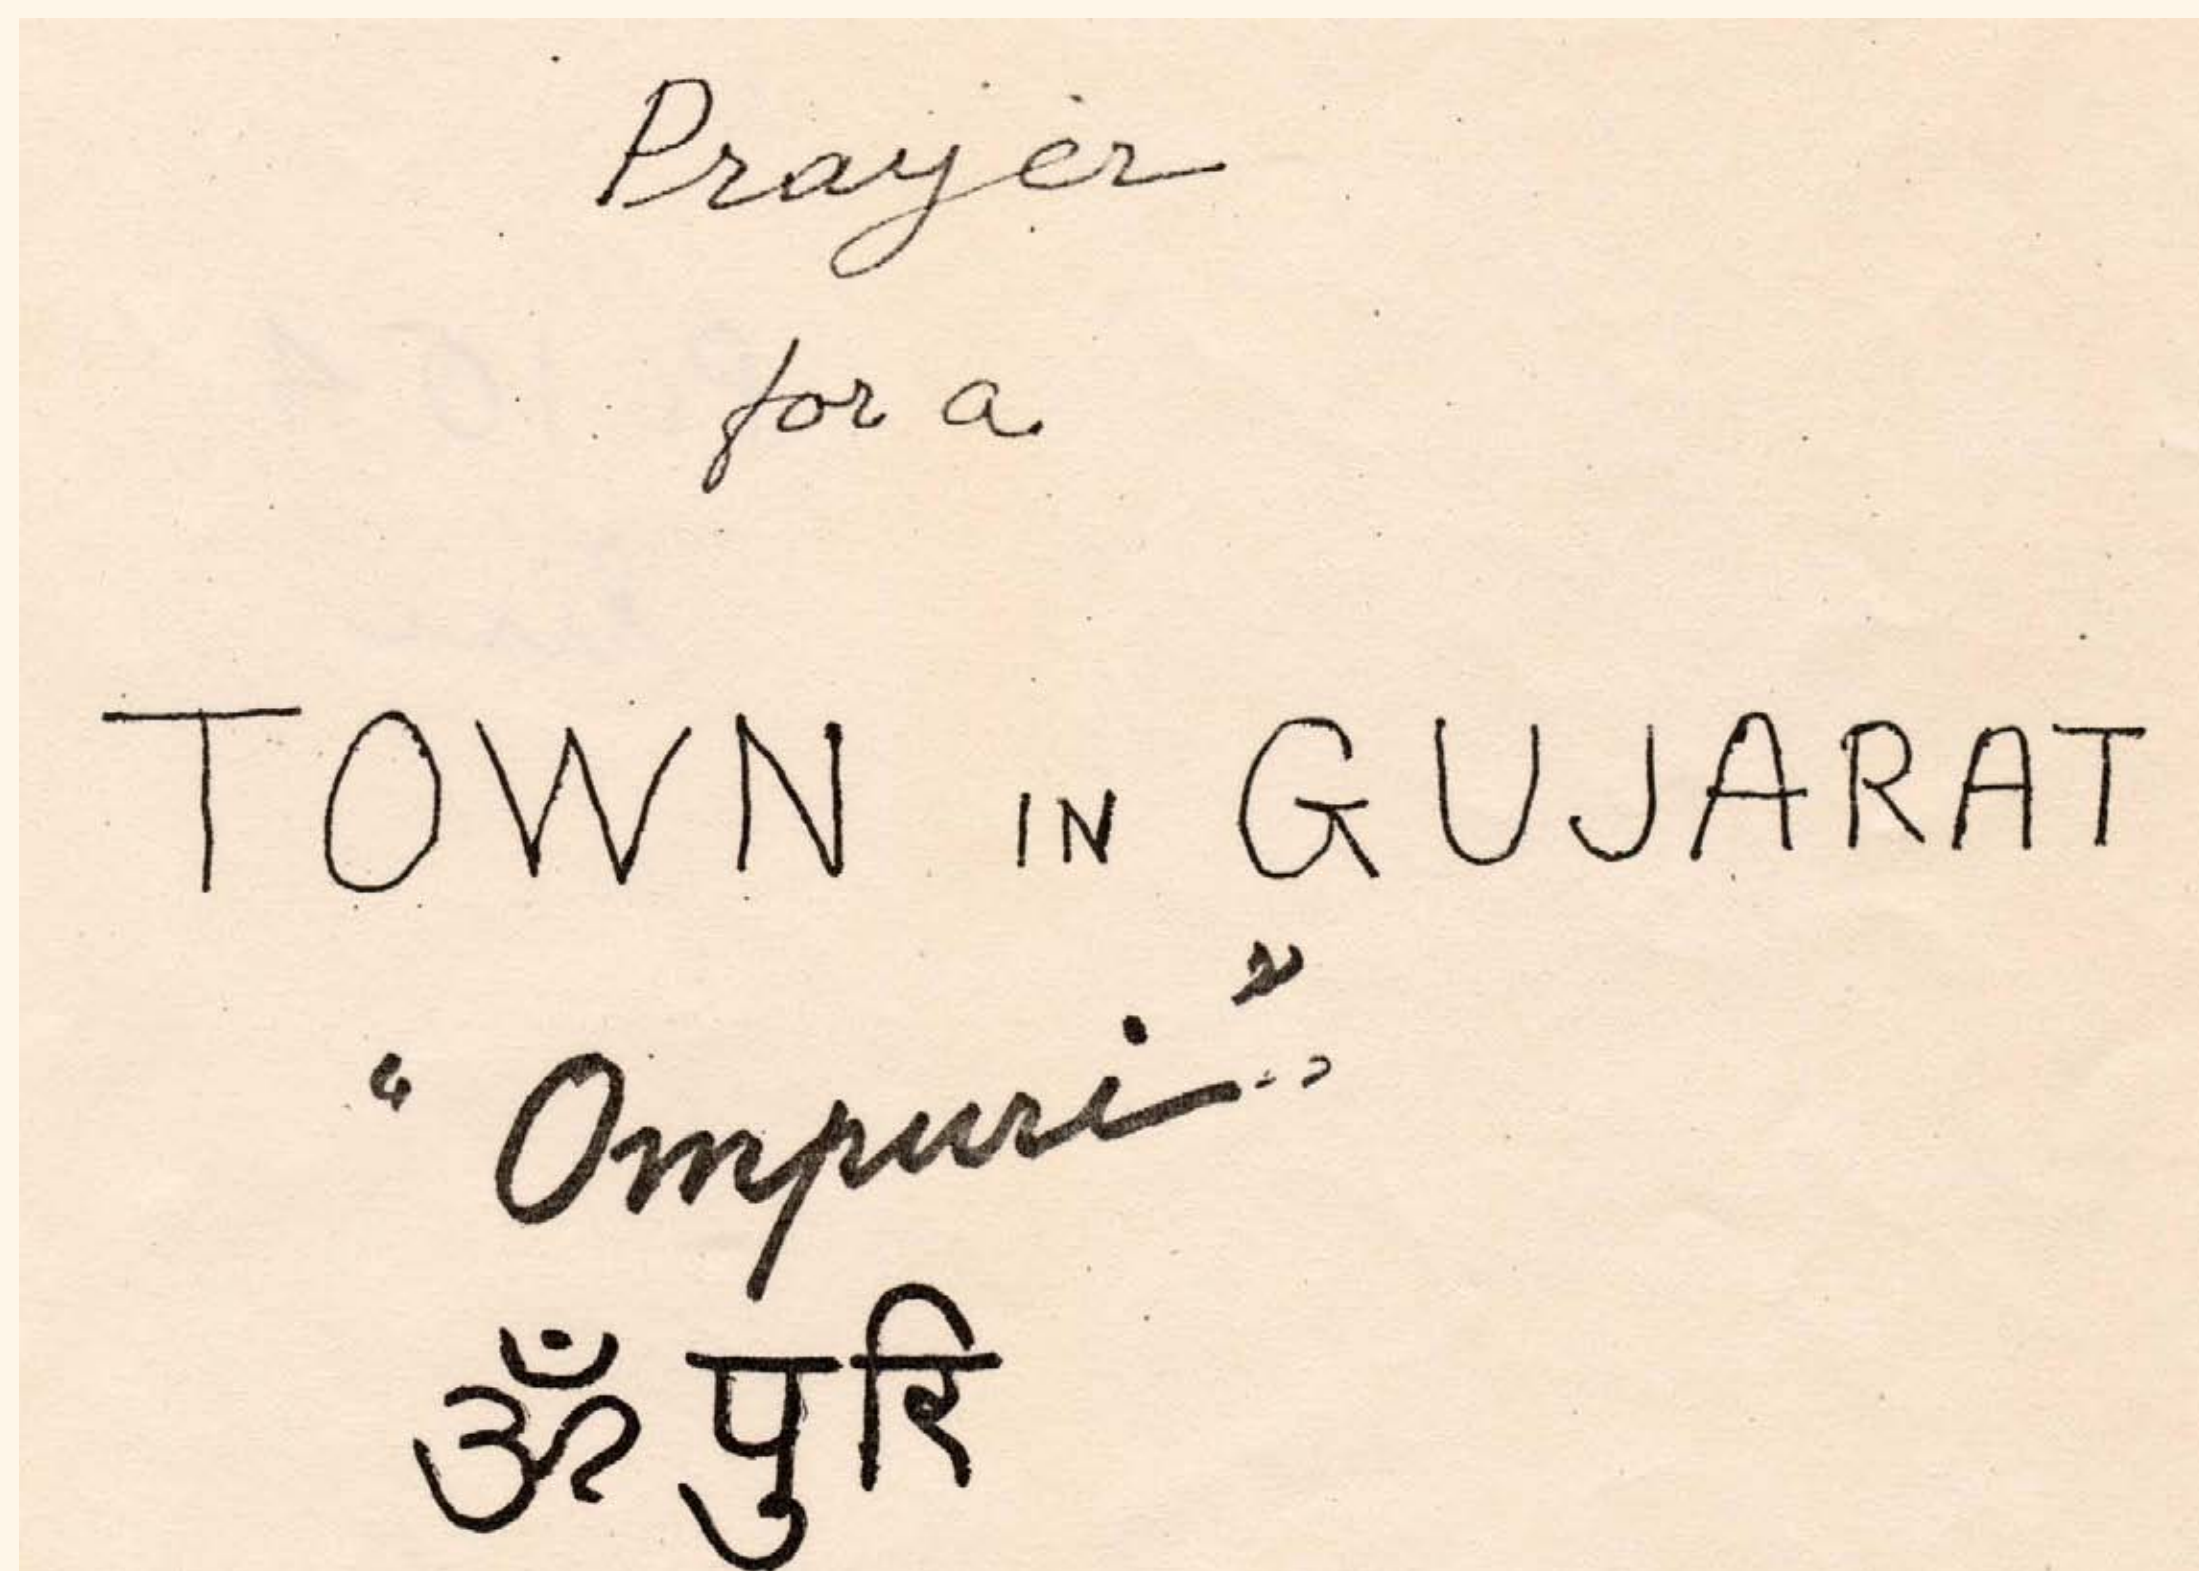 Prayer
for a
TOWN IN GUJARAT
"Ompuri"
ॐ पुरि